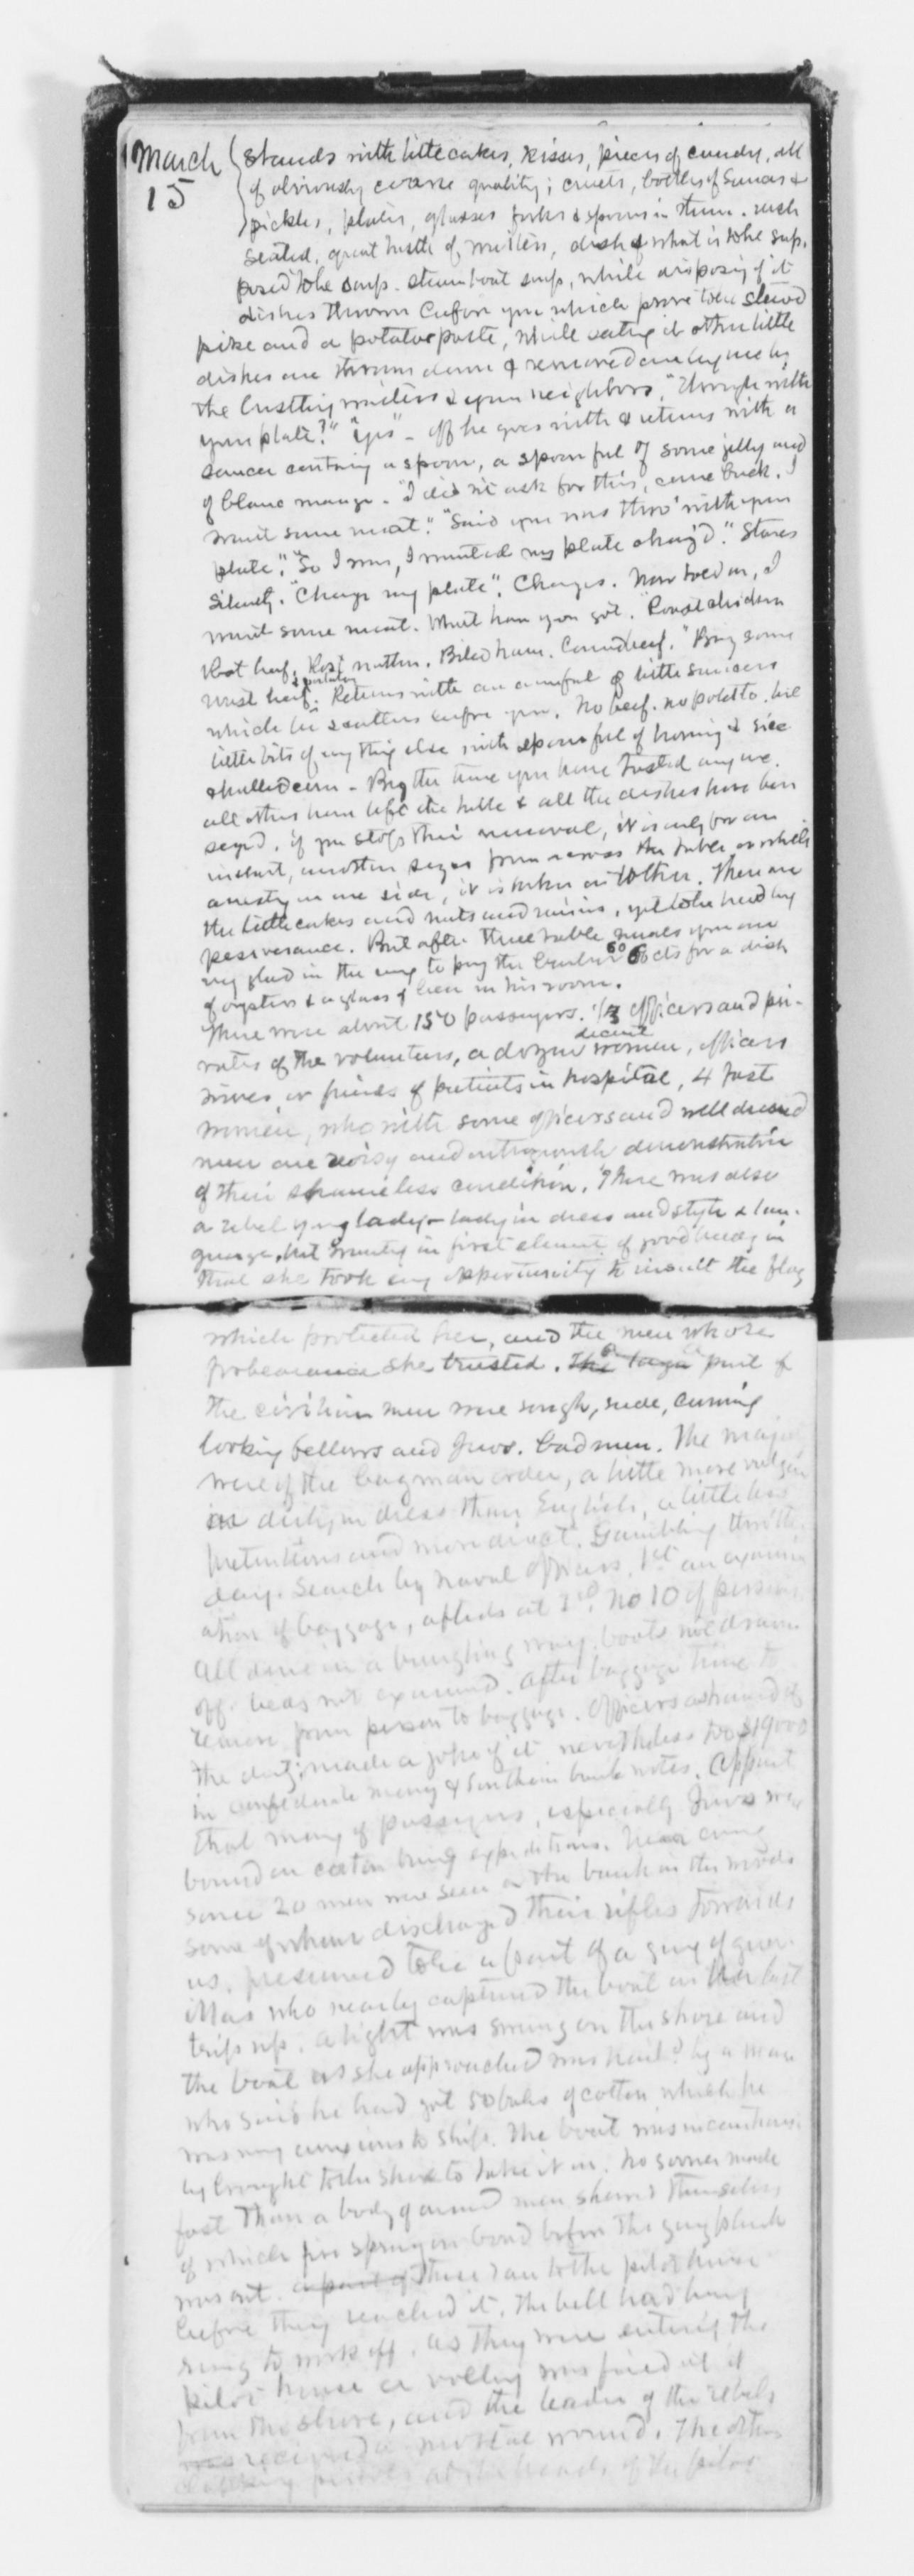 March 15
stands with little cakes, kisses, pieces of candy, all
of obviously coarse quality; cruets, bottles of sauces &
pickles, plates, glasses forks & spoons in them. when
seated, great hustle of waiters, dish of what is to be sup-
posed to be soup. steamboat soup, while disposing of it
dishes thrown before you which prove to be stewed
pike and a potatoe paste, while eating it other little
dishes are thrown down & removed one by one by
the bustling waiters & your neighbors. "Through with
your plate?" "Yes" - off he goes with & returns with a
saucer containg a spoon, a spoonful of some jelly and
of blanc mange. "I did n't ask for this, come back. I
want some meat." "Said you was thro' with your
plate". "So I was, I wanted my plate chang'd." Stares
silently. "Change my plate". Changes. Now hold on, I
want some meat. What have you got. "Roast chicken
Rost beef, Rost mutton. Biled ham. Corned beef." "Bring some
roast beef. & potatoes Returns with an armful of little saucers
which he scatters before you. No beef. no potatto. but
little bits of any thing else with spoonsful of hominy & rice
& hulled corn - By the time you have tasted any one.
all others have left the table & all the dishes have been
seized, if you stop their removal, it is only for an
instant, another seizes from across the table or while
arresting on one side, it is taken on tother. There are
the little cakes and nuts and raisins, yet to be had by
perseverance. But after three table meals you are
very glad in the eveng to pay the barber 60 cts for a dish
of oysters & a glass of beer in his room.
There were about 150 passengers. 1/3 officers and pri-
vates of the volunteers, a dozen decent women, officers
wives or friends of patients in hospital, 4 fast
women, who with some officers and well dressed
men are noisy and outrageously demonstrative
of their shameless condition. There was also
a rebel young lady - lady in dress and style & lan-
guage, but wanting in first element of good breedg in
that she took every opportunity to insult the flag
which protected her, and the men whose
forbearance she trusted. A large part of
the civilian men were rough, rude, cunning
looking fellows and Jews. bad men. The major
were of the bagman order, a little more vulgar
dirty in dress than English, a little less
pretentious and more direct. Gambling thro' the
day. Search by naval officers. 1st an examin
ation of baggage, afterds at 2nd No 10 of persons
All done in a bungling way. boots not drawn
off. beds not examined. After baggage time to
remove from person to baggage. Officers ashamed of
the duty; made a joke of it nevertheless took $19000
in confederate money & Southern bank notes. Appart
that many of passengers, especially Jews were
bound on cotton buying expeditions. Near eveng
some 20 men were seen on the bank in the woods
some of whom discharged their rifles towards
us. presumed to be a part of a gang of guer-
illas who nearly captured the boat on her last
trip up. A light was swung on the shore and
the boat as she approached was hail'd by a man
who said he had got 50 bales of cotton which he
was very anxious to ship. The boat was incautious-
ly brought to the shore to take it in. No sooner made
fast than a body of armed men showed themselves,
of which five sprung on board before the gang plank
was out. These ran to the pilot house
before they reached it. The bell had been
rung to work off. As they were entering the
pilot house a volley was fired at it
from the shore, and the leader of the rebels
received a mortal wound. The others
pistols at the heads of the pilot